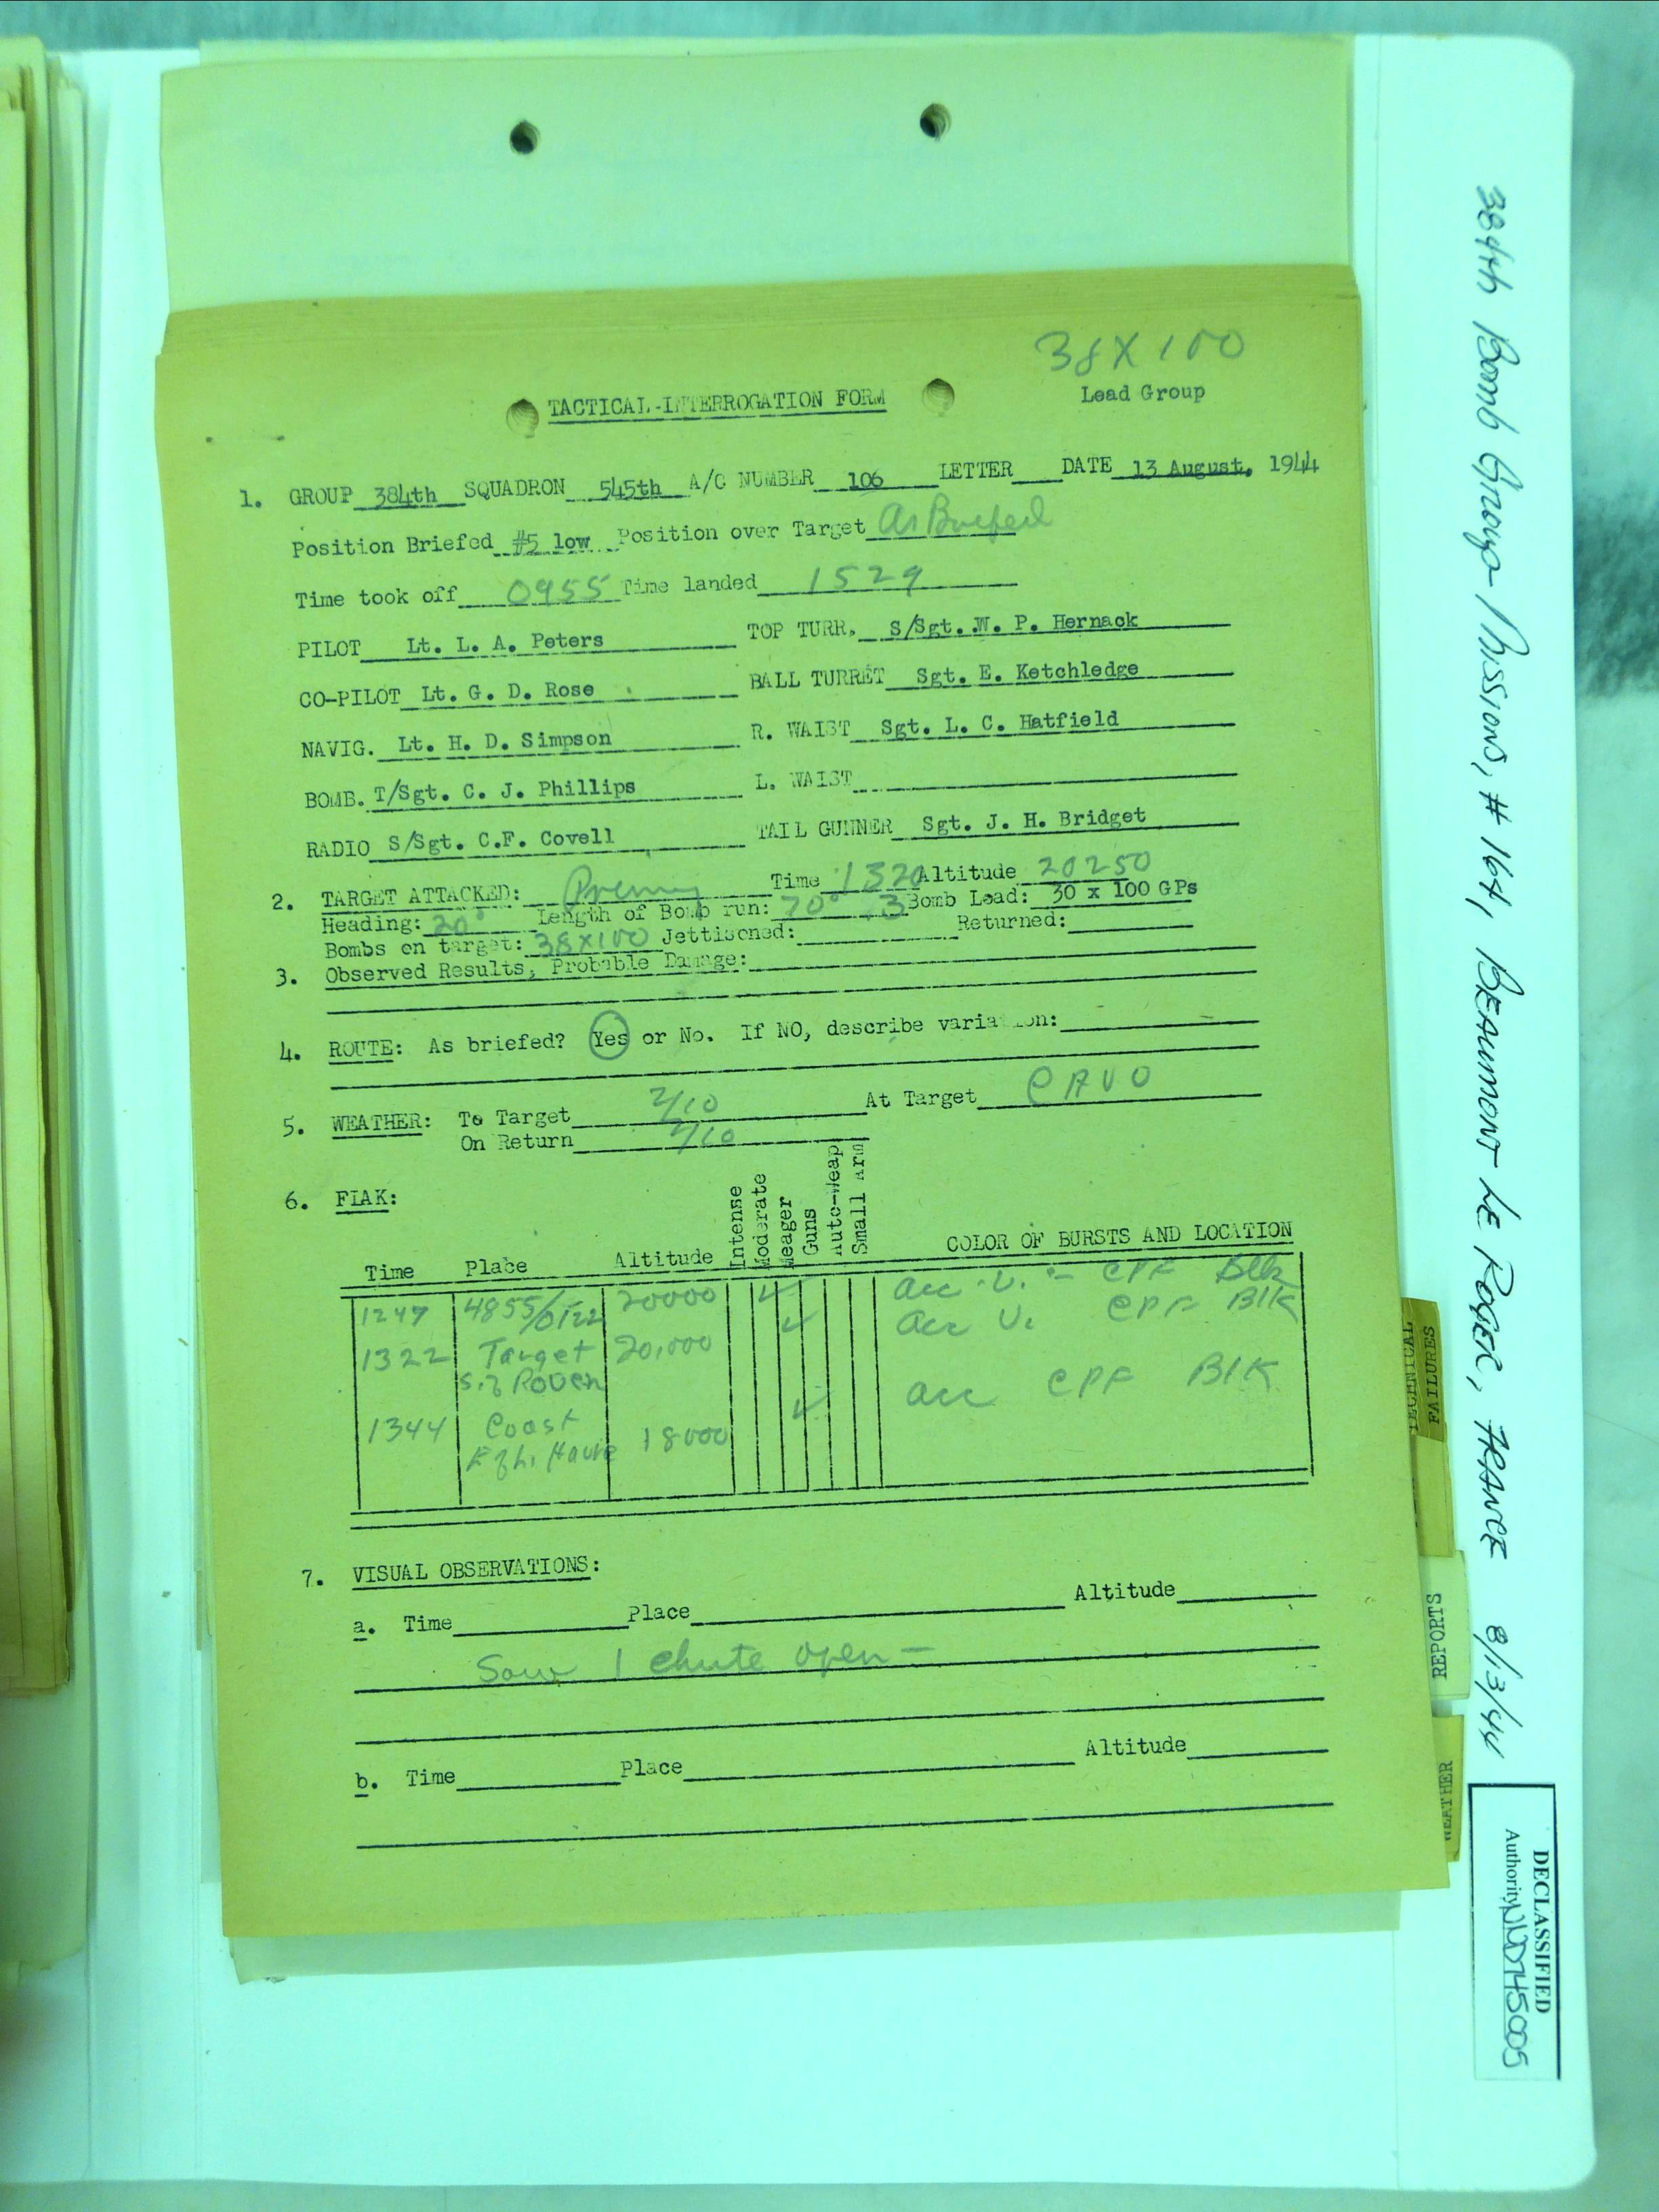 38 X 100
TACTICAL-INTERROGATION FORM
Lead Group
1. GROUP 384th SQUADRON 545th A/C NUMBER 106 LETTER DATE 13 August, 1944
Position Briefed #5 low Position over Target As Briefed
Time took off 0955 Time landed 1529
PILOT Lt. L. A. Peters TOP TURR. S/Sgt. W. P. Hernack
CO-PILOT Lt. G. D. Rose BALL TURRET Sgt. E. Ketchledge
NAVIG. Lt. H. D. Simpson R. WAIST Sgt. L. C. Hatfield
BOMB. T/Sgt. C. J. Phillips L. WAIST
RADIO S/Sgt. C.F. Covell TAIL GUNNER Sgt. J. H. Bridget
2. TARGET ATTACKED: Time 1320 Altitude 20250
Heading: 20° Length of Bomb run: 70° 3 Bomb Load: 30 x 100 GPs
Bombs on target: 38X100 Jettisoned: Returned:
3. Observed Results, Probable Damage:
4. ROUTE: As briefed? Yes or No. If NO, describe variation:
5. WEATHER: To Target 2/10 At Target CAVU
On Return 2/10
6. FLAK:
Time Place Altitude Intense Moderate Meager Guns Auto-Weap Small Arm COLOR OF BURSTS AND LOCATION
1247 4855/0122 20000 ✓ acc U. - CPF Blk
1322 Target 20,000 ✓ acc U. CPF Blk
S. of Rouen
1344 Coast 18000 ✓ acc CPF Blk
E of L. Havre
7. VISUAL OBSERVATIONS:
a. Time Place Altitude
Saw 1 chute open -
b. Time Place Altitude
384th Bomb Group - Missions, # 164, BEAUMONT LE ROGER, FRANCE 8/13/44
TECHNICAL FAILURES
REPORTS
WEATHER
DECLASSIFIED
Authority NND745005